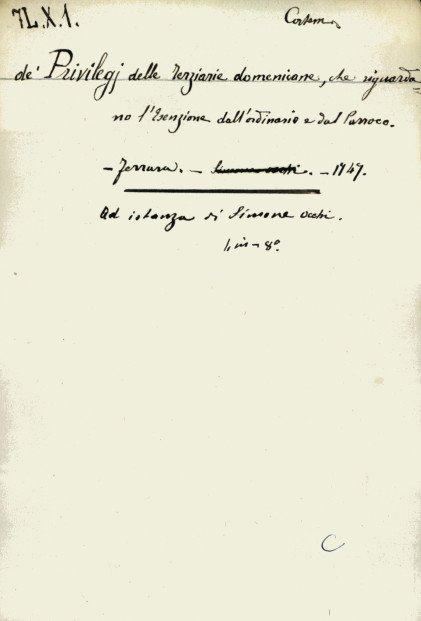 7L.X.1.
de' Privilegj delle Terziarie domenicane, che riguarda=
no l'Esenzione dall'ordinario e dal Parroco.
- Ferrara. - Simone occhi. - 1747.
Ad istanza di Simone Occhi.
in - 8º.
C